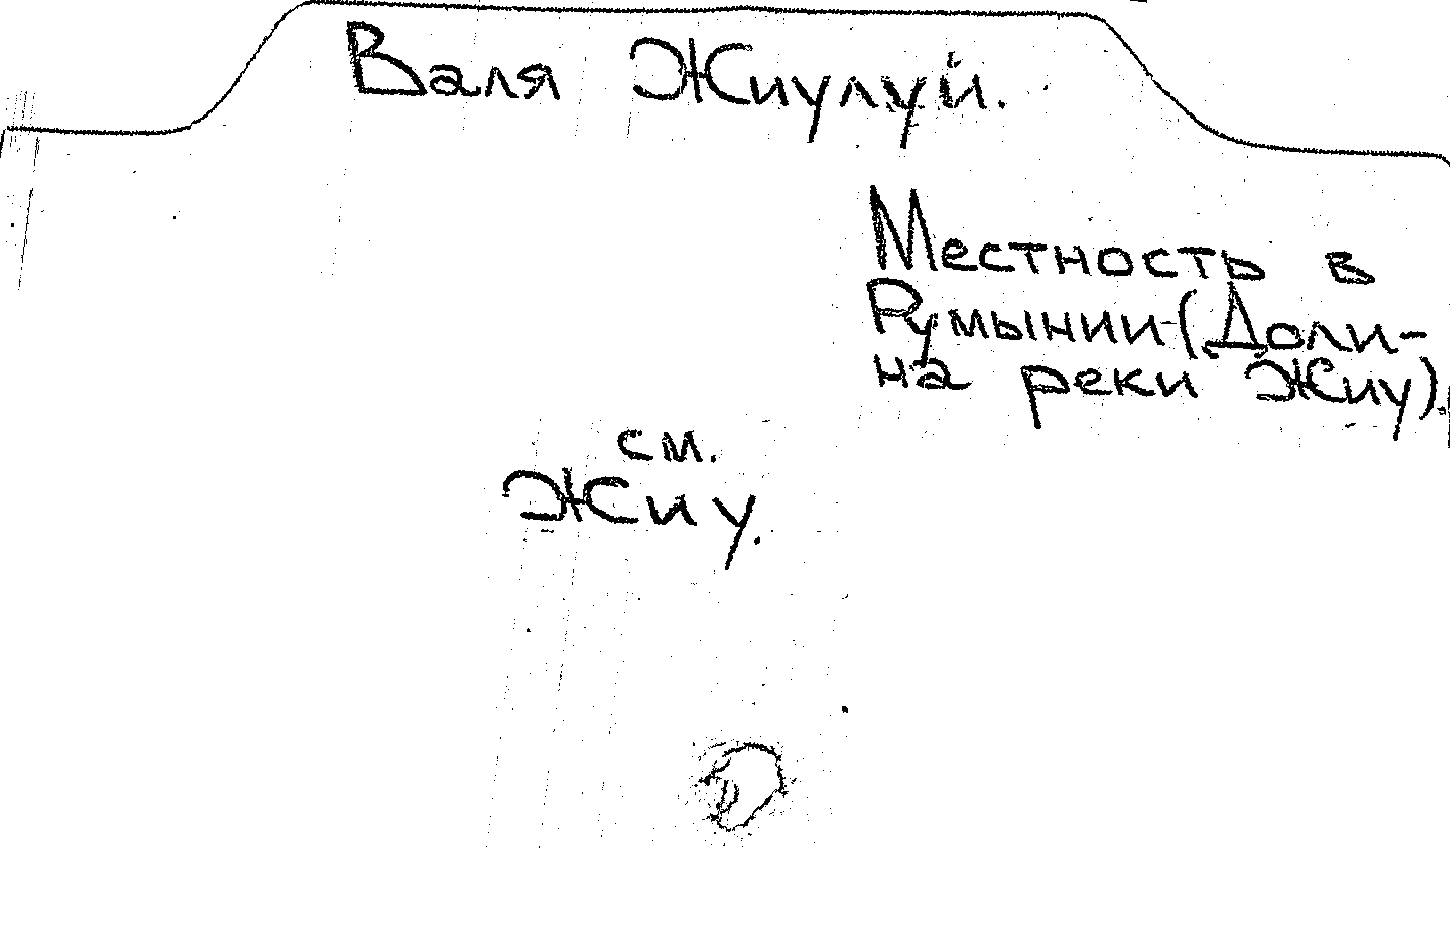 Валя Жиулуй.
Местность в
Румынии (Доли-
на реки Жиу).
см.
Жиу.